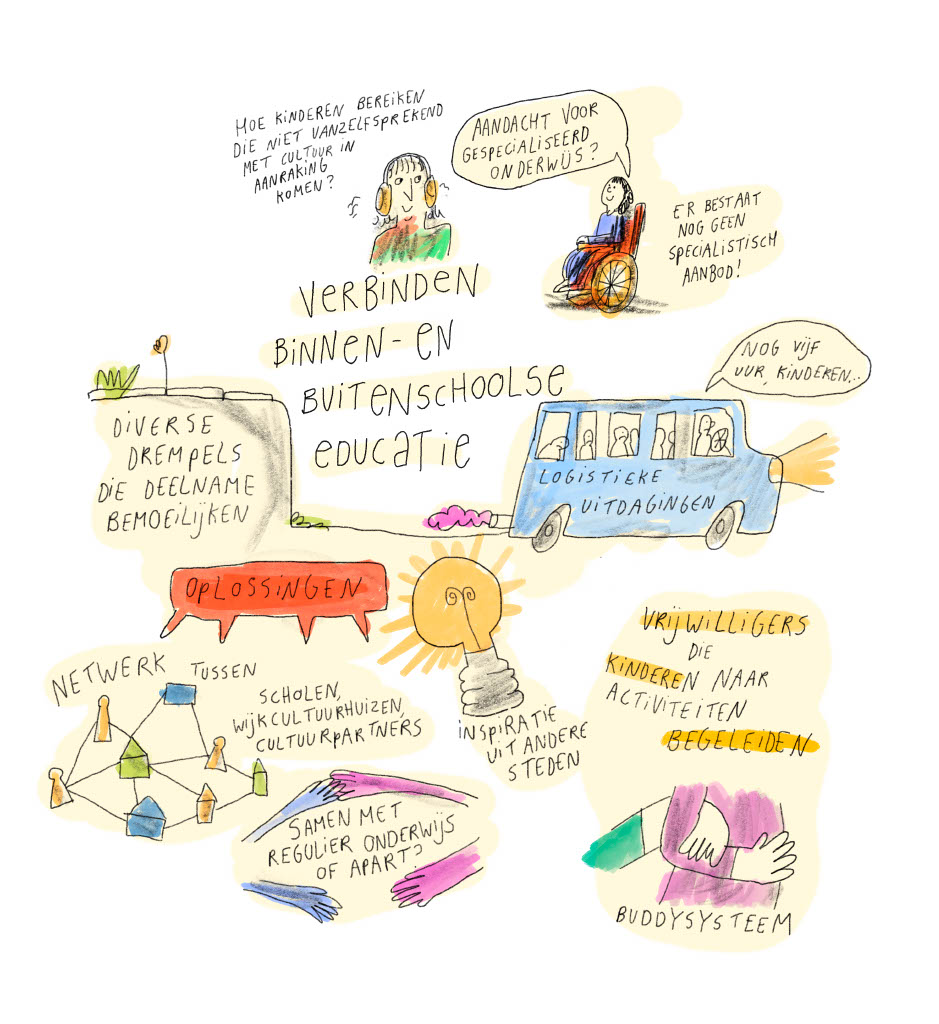 HOE KINDEREN BEREIKEN
DIE NIET VANZELFSPREKEND
MET CULTUUR IN
AANRAKING
KOMEN?
AANDACHT VOOR
GESPECIALISEERD
ONDERWIJS?
ER BESTAAT
NOG GEEN
SPECIALISTISCH
AANBOD!
VERBINDEN
BINNEN- EN
BUITENSCHOOLSE
EDUCATIE
NOG VIJF
UUR, KINDEREN...
DIVERSE
DREMPELS
DIE DEELNAME
BEMOEILIJKEN
LOGISTIEKE
UITDAGINGEN
OPLOSSINGEN
NETWERK TUSSEN
SCHOLEN,
WIJKCULTUURHUIZEN,
CULTUURPARTNERS
INSPIRATIE
UIT ANDERE
STEDEN
VRIJWILLIGERS
DIE
KINDEREN NAAR
ACTIVITEITEN
BEGELEIDEN
SAMEN MET
REGULIER ONDERWIJS
OF APART?
BUDDYSYSTEEM